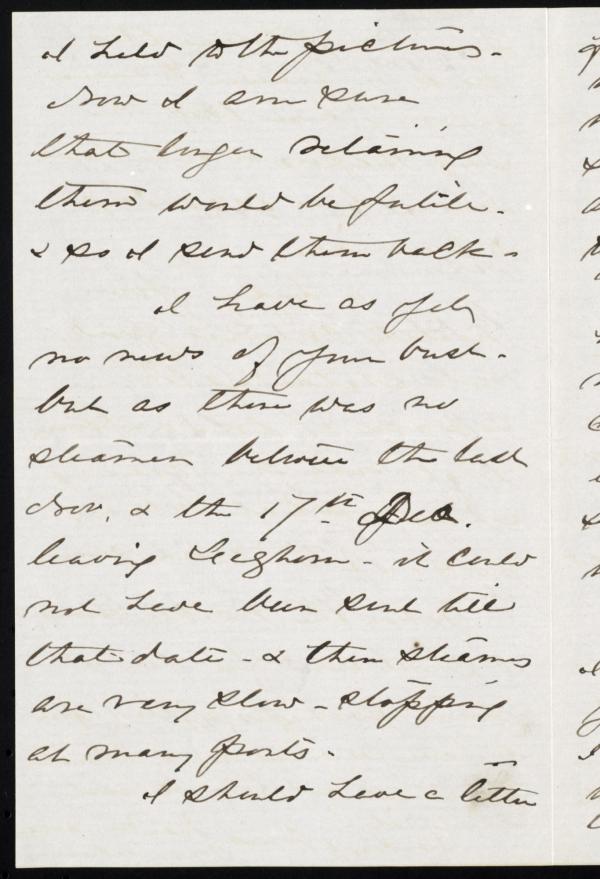 I held to the pictures -
Now I am sure
that longer retaining
them would be futile -
& so I send them back -
I have as yet
no news of your bust -
but as there was no
steamer between the last
Nov. & the 17th Dec.
leaving Leghorn - it could
not have been sent till
that date - & then steamers
are very slow - stopping
at many ports -
I should have a letter